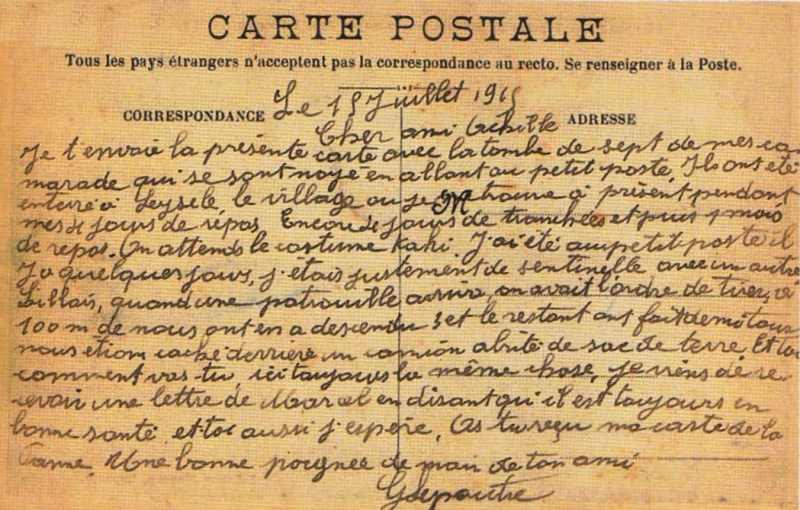 CARTE POSTALE
Tous les pays étrangers n'acceptent pas la correspondance au recto. Se renseigner à la Poste.
CORRESPONDANCE Le 15 Juillet 1915 ADRESSE
Cher ami Achille
Je t'envoie la présente carte avec la tombe de sept de mes ca
marade qui se sont noyé en allant au petit poste, Ils ont été
enterré à Leysele le village ou je M trouve à présent pendant
mes jours de repos. Encore jours de tranchées et puis 1 mois
de repos. On attends le costume Kaki J'ai été au petit poste il
y a quelques jours, j'étais justement de sentinelle avec un autre
Lillois, quand une patrouille arriva, on avait l'ordre de tirer, à
100 m de nous ont en a descendu 3 et le restant ont fait demi tour
nous étiom caché derrière un camion abrité de sac de terre. Et toi
comment vas-tu, ici toujours la même chose, je viens de re
cevoir une lettre de Marcel en disant qu'il est toujours en
bonne santé et toi aussi j'espère, As tu reçu ma carte de la
Canne. Une bonne poignée de main de ton ami
GLepoutre